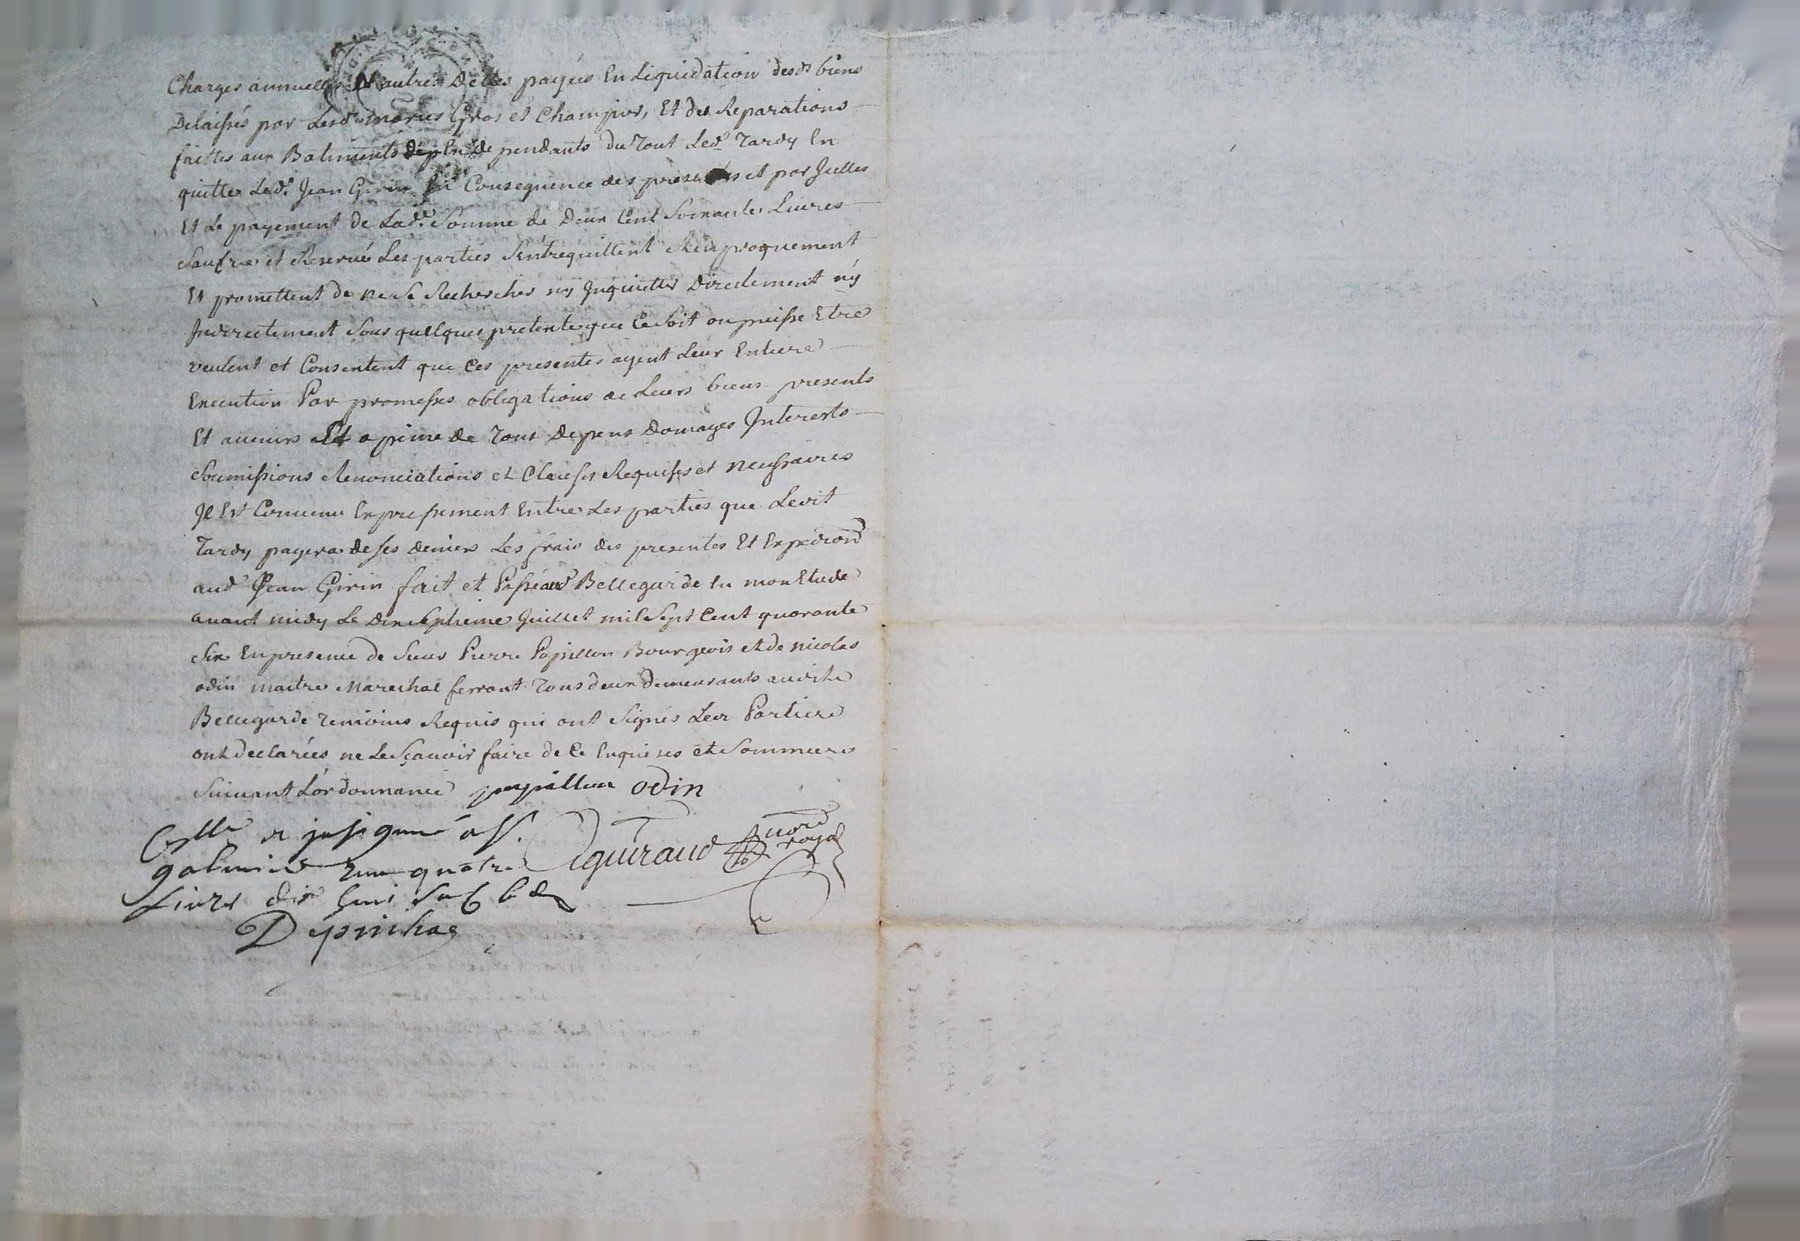 Charges annuelles Et autres Dettes payées En Liquidation desd. biens
Delaissés par Lesd. marius Gros et Champier, Et des Reparations
faittes aux Batiments En Dependants du Tout Led. Tardy En
quitte Led. Jean Girin En Consequence des presentes et par Jcelles
Et Le payement de Lad.e Somme de Deux Cent Soixante Livres
Sauf et Reservé Les parties S'entrequittent Reciproquement
Et promettent de ne se Rechercher ny Jnquietter Directement ny
Jndirectement Sous quelques pretexte que Ce Soit ou puisse Etre
veulent et Consentent que Ces presentes ayent Leur Entiere
Execution Par promesses obligations de Leurs biens presents
Et avenirs Et a peine de Tous Depens Domages Jnterests
Soumissions Renonciations et Clauses Requises et necessaires
Jl Est Convenu Expressement Entre Les parties que Ledit
Tardy payera de ses deniers Les frais des presentes Et Expedi͠on
aud. Jean Girin fait et Passé aud. Bellegarde En mon Etude
avant midy Le Dixseptieme Juillet mil Sept Cent quarante
Six En presence de Sieur Pierre Papillon Bourgeois et de nicolas
odin maitre Marechal ferrant Tous deux demeurants audit
Bellegarde Temoins Requis qui ont Signés Les Parties
ont declarées ne Le Sçavoir faire de Ce Enquises et Sommées
Suivant L'ordonnance papillon odin
Collé et
galmier quatre Eguiraud no.re royal
Livres dix
Depinhac